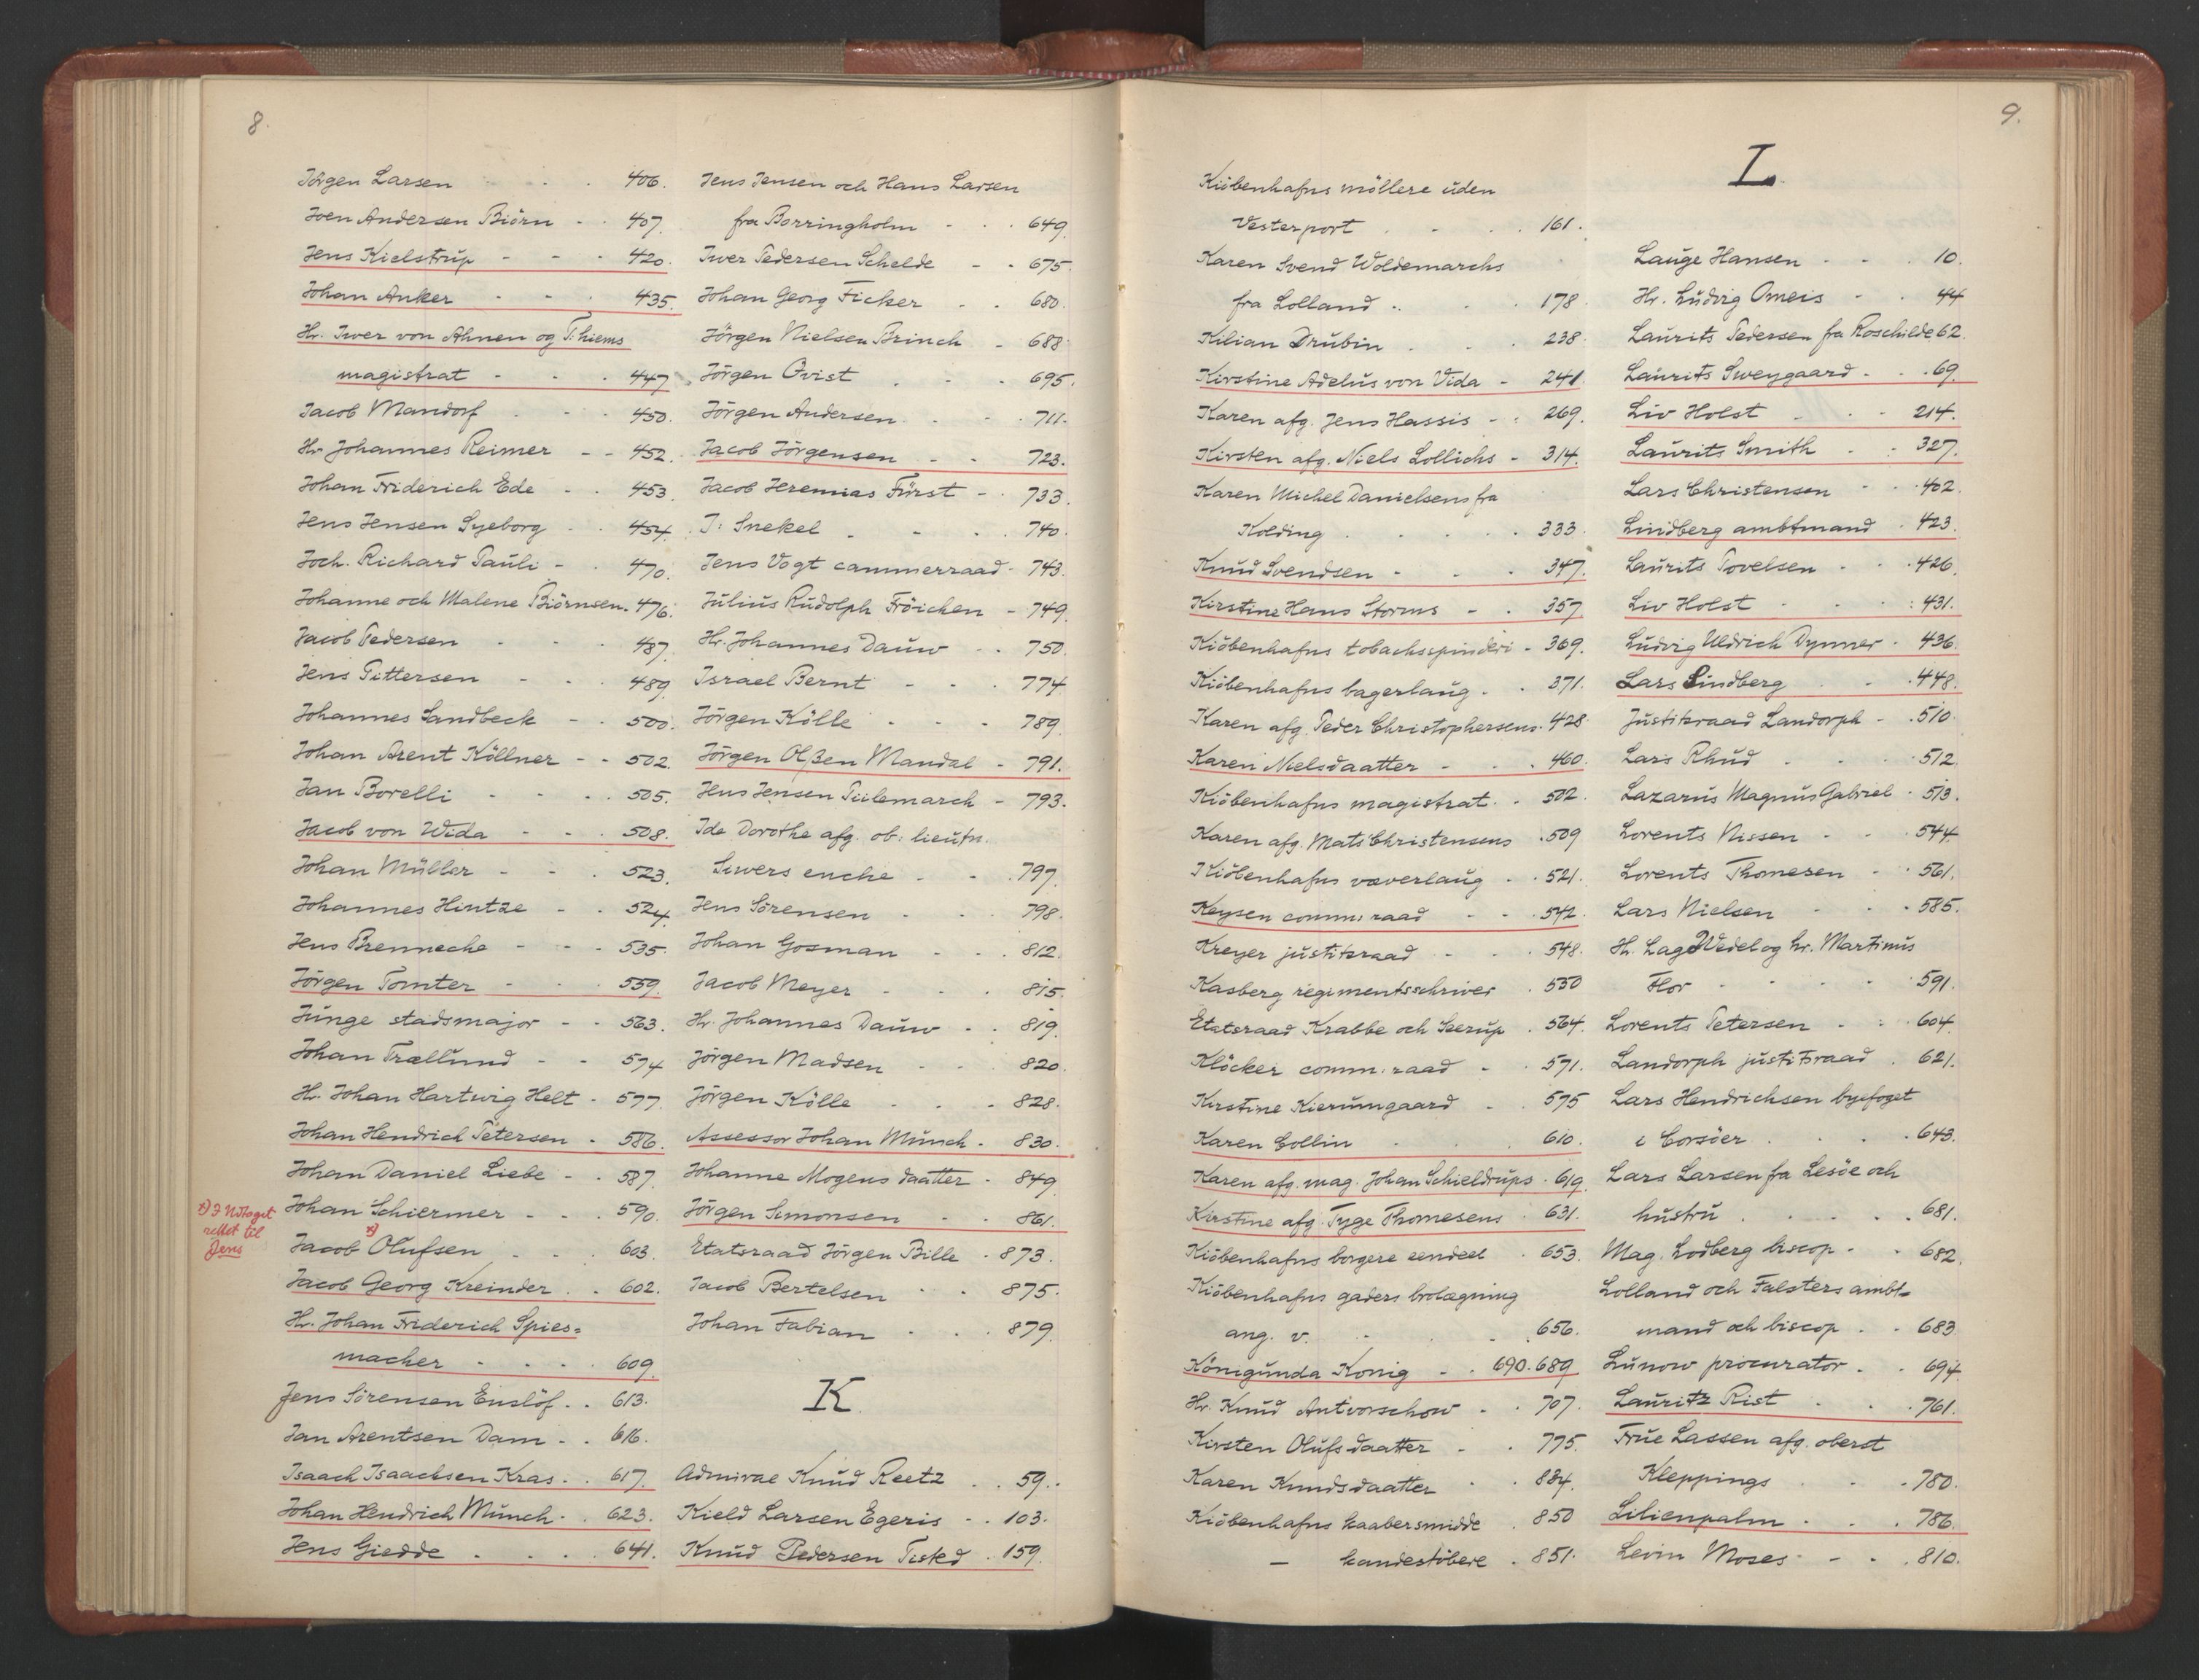 8.
Jörgen Larsen . . 406.
Joen Andersen Biörn - . 407.
Jens Kielstrup - - - 420.
Johan Anker - - . 435.
Hr. Iwer von Ahnen og T.hiems
magistrat - - . 447.
Jacob Mandorf . . . 450.
Hr Johannes Reimer - - 452.
Johan Friderich Ede - . 453.
Jens Jensen Syeborg . . 454.
Joch. Richard Pauli - . 470.
Johanne och Malene Biörnsen. 476.
Jacob Pedersen - . . 487.
Jens Pittersen - - . 489.
Johannes Sandbeck - . 500.
Johan Arent Köllner - - 502.
Jan Borelli - - . . 505.
Jacob von Wida - - . 508.
Johan Müller - - . 523.
Johannes Hintze - . 524.
Jens Brenneche - - - 535.
Jörgen Tomter - . . 559.
Junge stadsmajor - - 563.
Johan Trællund - - 574
H. Johan Hartwig Helt - 577.
Johan Hendrich Petersen . 586.
Johan Daniel Liebe - . 587.
x) I Udtoget
rettet til
Jens
Johan Schiermer - - . 590.
x)
Jacob Olufsen . . . 603.
Jacob Georg Kreinder . . 602.
Hr. Johan Friderich Spies=
macher - . . . 609.
Jens Sörensen Enslöf. . 613.
Jan Arentsen Dam - . 616.
Isaach Isaachsen Kras. . 617.
Johan Hendrich Munch . . 623.
Jens Giedde . . . . 641.
Jens Jensen och Hans Larsen
fra Borringholm - . . 649.
Iwer Pedersen Schelde - - 675.
Johan Georg Ficker - . 680.
Jörgen Nielsen Brinch - 688.
Jörgen Qvist . . . 695.
Jörgen Andersen . . . 711.
Jacob Jörgensen - - 723.
Jacob Jeremias Fürst - . 733.
I: Snekel . - . . 740.
Jens Vogt cammerraad - 743.
Julius Rudolph Fröichen - 749.
Hr. Johannes Dauw - . 750.
Israel Bernt - - . 774
Jörgen Kölle - - - 789.
Jörgen Olßen Mandal - 791.
Jens Jensen Piilemarch - 793.
Ide Dorothe afg. ob: lieutn.
Siwers enche . - . 797.
Jens Sörensen - . . 798.
Johan Gosman - - . 812.
Jacob Meyer - . . 815.
Hr. Johannes Dauw - . 819.
Jörgen Madsen - . 820.
Jörgen Kölle - . - 828.
Assessor Johan Munch . 830.
Johanne Mogens daatter . 849.
Jörgen Simonsen - - 861.
Etatsraad Jörgen Bille . 873.
Jacob Bertelsen . . 875.
Johan Fabian . . . 879.
K.
Admirae Knud Reetz . . 59..
Kield Larsen Egeris - . 103.
Knud Pedersen Tisted . 159.
9.
Kiöbenhafns möllere uden
Vesterport . - . . 161.
Karen Svend Woldemarchs
fra Lolland . . . . 178.
Kilian Drubin . . . 238.
Kirstine Adelus von Vida - 241.
Karen afg. Jens Hassis - . 269.
Kirsten afg. Niels Lollichs - 314.
Karen Michel Danielsens fra
Kolding . . . . . 333.
Knud Svendsen - - . 347.
Kirstine Hans Storms - . 357.
Kiöbenhafns tobachsspinderi - 369.
Kiöbenhafns bagerlaug . . 371.
Karen afg. Peder Christophersens. 428.
Karen Nielsdaatter - . . 460.
Kiöbenhafns magistrat . . 502.
Karen afg. Mats Christensens . 509
Kiöbenhafns væverlaug . . 521.
Keysen comm. raad - - . 542.
Kreyer justitsraad - . . 548.
Kasberg regimentsschriver . 550
Etatsraad Krabbe och Seerup . 564.
Klöcker comm. raad - . 571.
Kirstine Kierumgaard - . 575
Karen Collin . . . 610.
Karen afg. mag. Johan Schieldrups . 619.
Kirstine afg. Tyge Thomesens . 631.
Kiöbenhafns borgere eendeel . 653.
Kiöbenhafns gaders brolægning
ang. v. . . . . 656.
Königunda Konig - . 690.689.
Hr. Knud Antvorschow - . 707.
Kirsten Olufsdaatter - . 775.
Karen Knudsdaatter . . 884.
Kiöbenhafns kaabersmidde . 850
— kandestöbere . 851.
L.
Lauge Hansen - - . 10.
Hr. Ludvig Omeis - . 44
Laurits Pedersen fra Roschilde 62.
Laurits Sweygaard . . . 69.
Liv Holst - . - 214.
Laurits Smith . . 327.
Lars Christensen - . . 402.
Lindberg ambtmand . 423.
Laurits Povelsen . . . 426.
Liv Holst - . . : 431.
Ludvig Uldrich Dynner . 436.
Lars Lindberg . - . 448.
Justitsraad Landorph - . 510.
Lars Rhud . . . . 512.
Lazarus Magnus Gabriel . 513.
Lorents Nissen - . . 544.
Lorents Thomesen - . 561.
Lars Nielsen - . . 585.
Hr. Lage Wedel og hr. Martinus
Flor - . . . . 591.
Lorents Petersen - : 604.
Landorph justitsraad . 621.
Lars Hendrichsen byefoget
i Corsöer . . . . 643.
Lars Larsen fra Lesöe och
hustru . . . . . 681.
Mag. Lodberg biscop . . 682.
Lolland och Falsters ambt=
mand och biscop . . 683.
Lunow procurator . . 694.
Lauritz Rist . . . 761.
Frue Lassen afg. oberst
Kleppings . . . 780.
Lilienpalm . . . 786.
Levin Moses . - . 810.